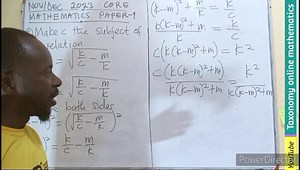 NOV/DEC 2023 CORE
MATHEMATICS PAPER-1
Make c the subject of
relation
√(k/c - m/k)
√(k/c - m/k)
both sides
= (√(k/c - m/k))²
k/c - m/k
(k-m)² + m/k = k/c
k(k-m)² + m / k = k/c
c(k(k-m)²+m) = k²
c(k(k-m)²+m) / k(k-m)²+m = k² / k(k-m)²+m
Taxonomy online mathematics
YouTube
PowerDirector